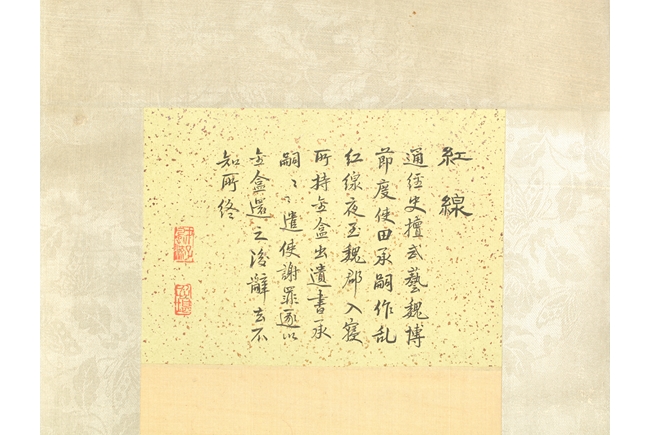 紅線
通經史擅武藝魏博
節度使田承嗣作乱
紅線夜至魏郡入寢
所持金盒出遺書承
嗣〻遣使謝罪遂以
金盒還之後辭去不
知所終